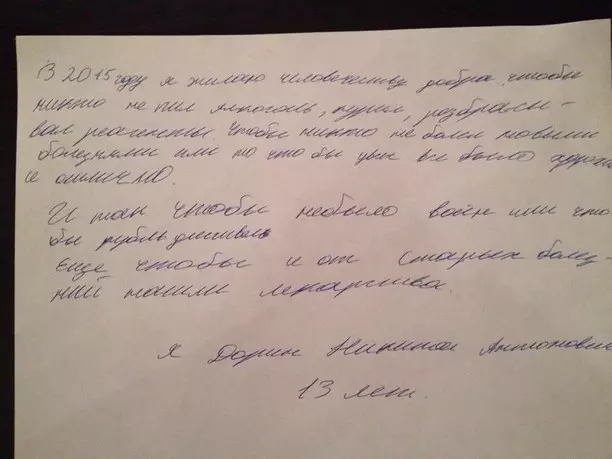 В 2015 году я жилаю человечеству добра. чтобы
никто не пил алкоголь, курил, разбрасы-
вал реагенты. Чтобы никто не болел новыми
болезнями или но что бы у всё было хорошо
и отлично.
И так чтобы небыло войн или что
бы рубль
Еще чтобы и от старых болез-
ний нашли лекарства.
Я Дорин Никита Антонович
13 лет.